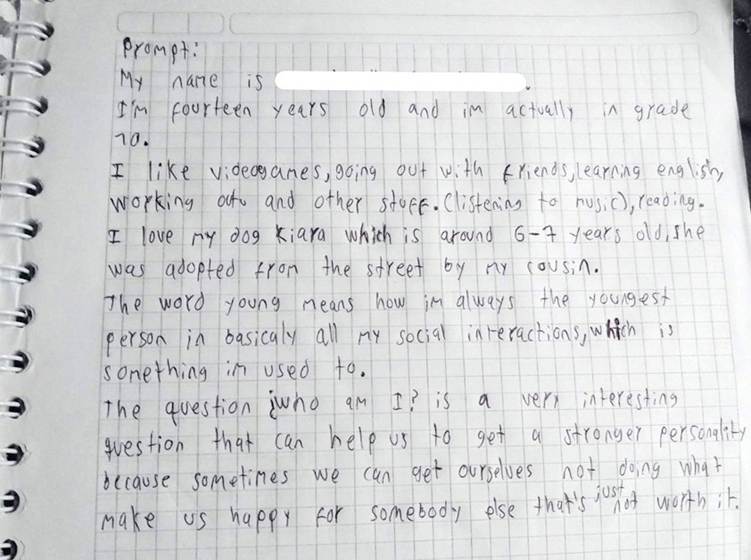 Prompt:
My name is .
I'm fourteen years old and im actually in grade
10.
I like videogames, going out with friends, learning english,
working out and other stuff. (listening to music), reading.
I love my dog Kiara which is around 6-7 years old, she
was adopted from the street by my cousin.
The word young means how im always the youngest
person in basicaly all my social interactions, which is
something im used to.
The question ¿who am I? is a very interesting
question that can help us to get a stronger personality
because sometimes we can get ourselves not doing what
make us happy for somebody else that's just not worth it.